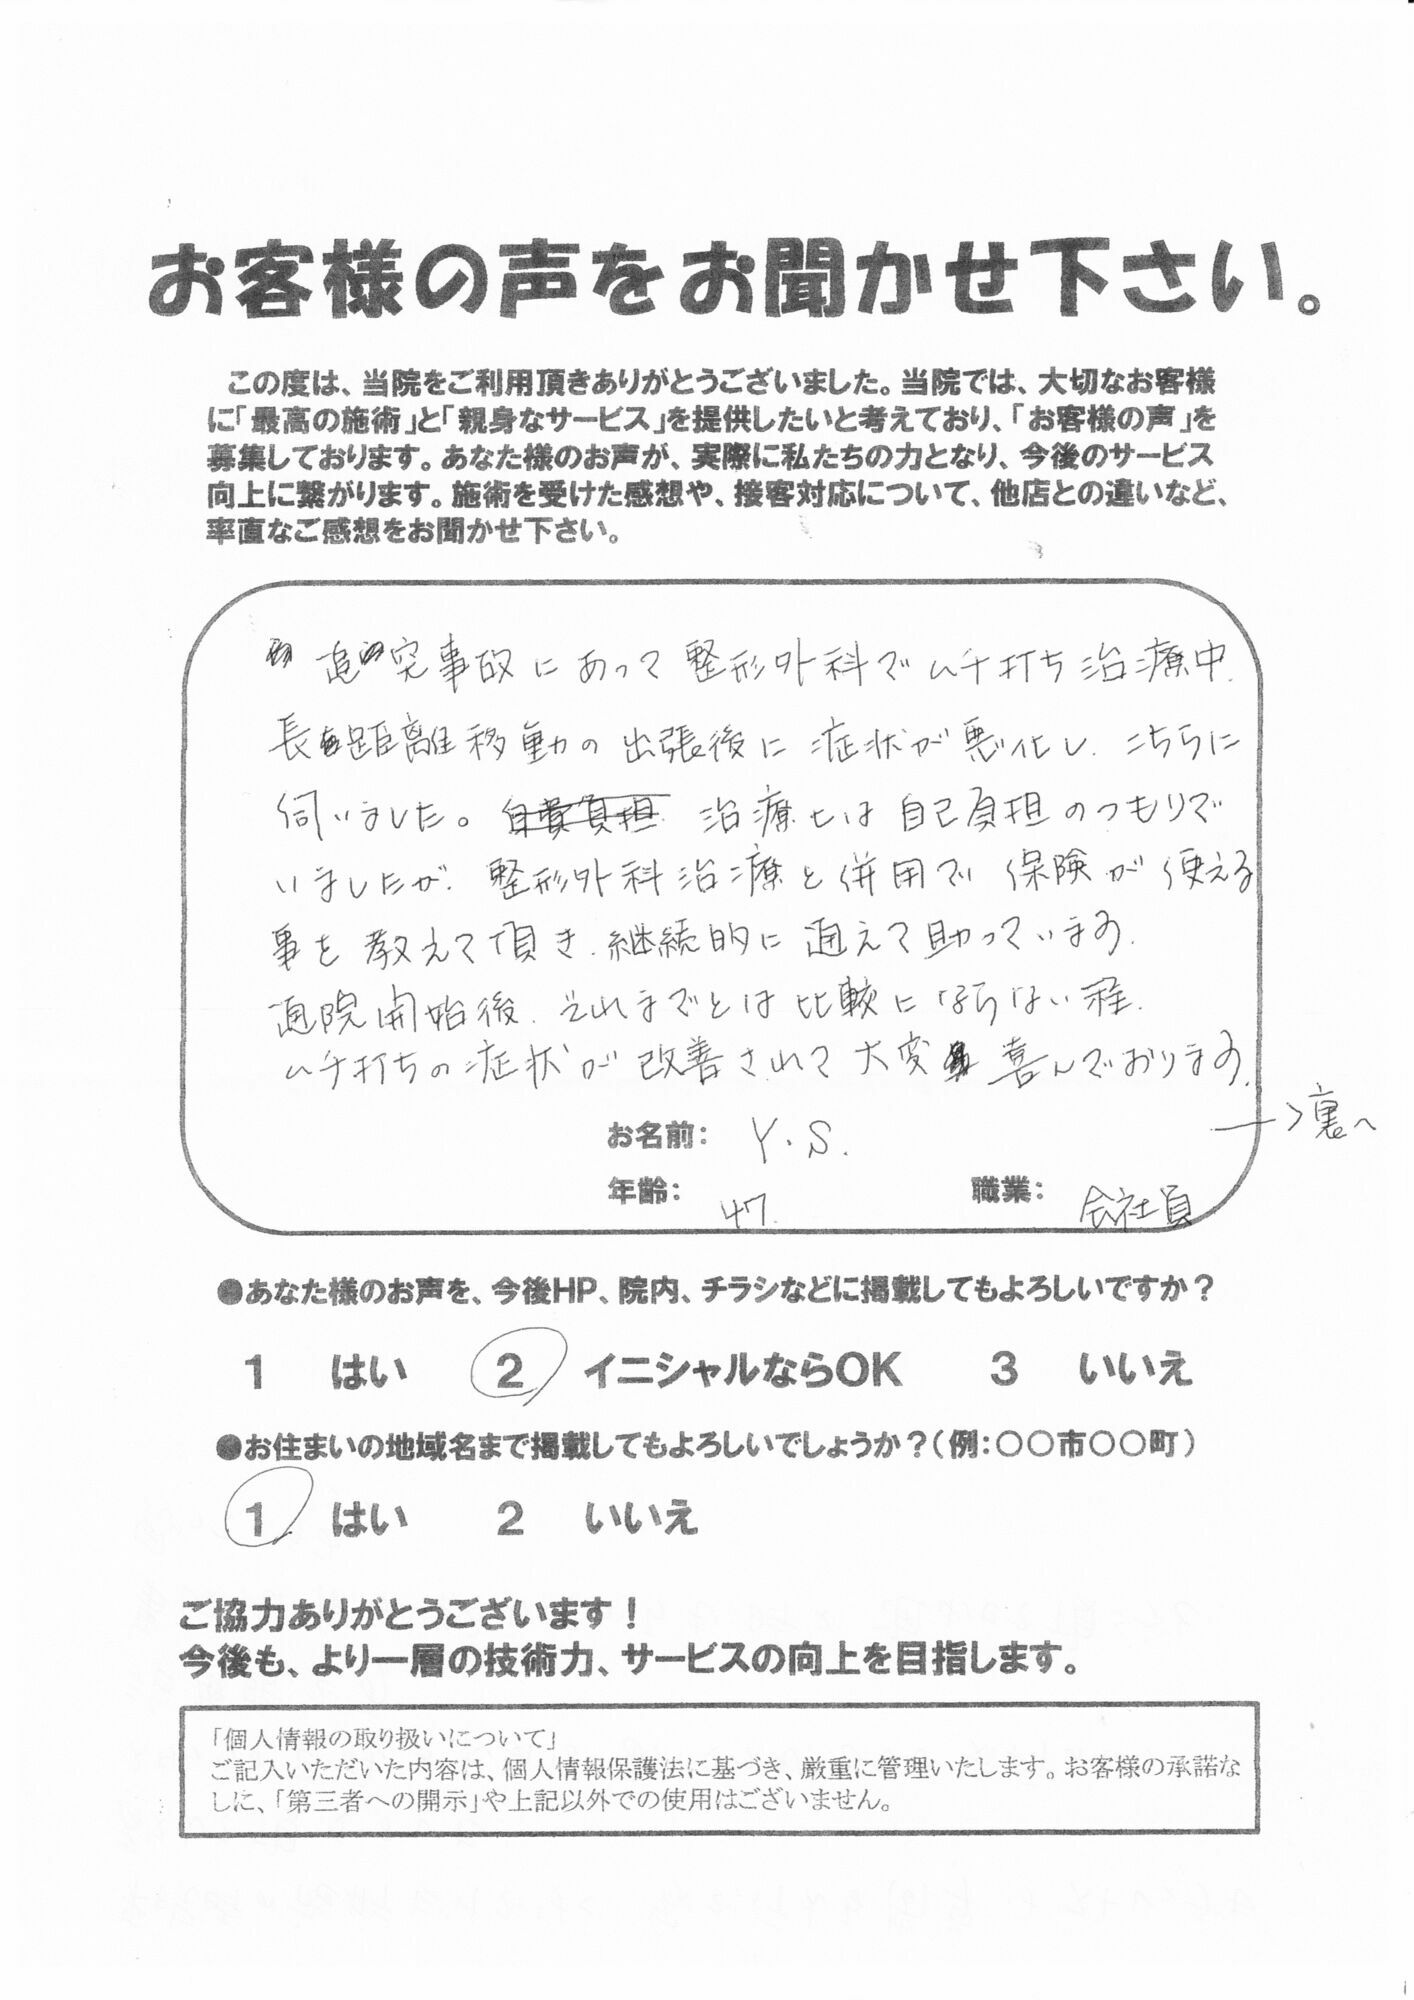 お客様の声をお聞かせ下さい。
この度は、当院をご利用頂きありがとうございました。当院では、大切なお客様
に「最高の施術」と「親身なサービス」を提供したいと考えており、「お客様の声」を
募集しております。あなた様のお声が、実際に私たちの力となり、今後のサービス
向上に繋がります。施術を受けた感想や、接客対応について、他店との違いなど、
率直なご感想をお聞かせ下さい。
追突事故にあって整形外科でムチ打ち治療中、
長距離移動の出張後に症状が悪化し、こちらに
伺いました。自費負担 治療は自己負担のつもりで
いましたが、整形外科治療と併用で保険が使える
事を教えて頂き、継続的に通えて助っています。
通院開始後、それまでとは比較にならない程、
ムチ打ちの症状が改善されて大変喜んでおります。
→裏へ
お名前: Y.S.
年齢: 47. 職業: 会社員
●あなた様のお声を、今後HP、院内、チラシなどに掲載してもよろしいですか?
1 はい 2 イニシャルならOK 3 いいえ
●お住まいの地域名まで掲載してもよろしいでしょうか?(例:〇〇市〇〇町)
1 はい 2 いいえ
ご協力ありがとうございます!
今後も、より一層の技術力、サービスの向上を目指します。
「個人情報の取り扱いについて」
ご記入いただいた内容は、個人情報保護法に基づき、厳重に管理いたします。お客様の承諾な
しに、「第三者への開示」や上記以外での使用はございません。